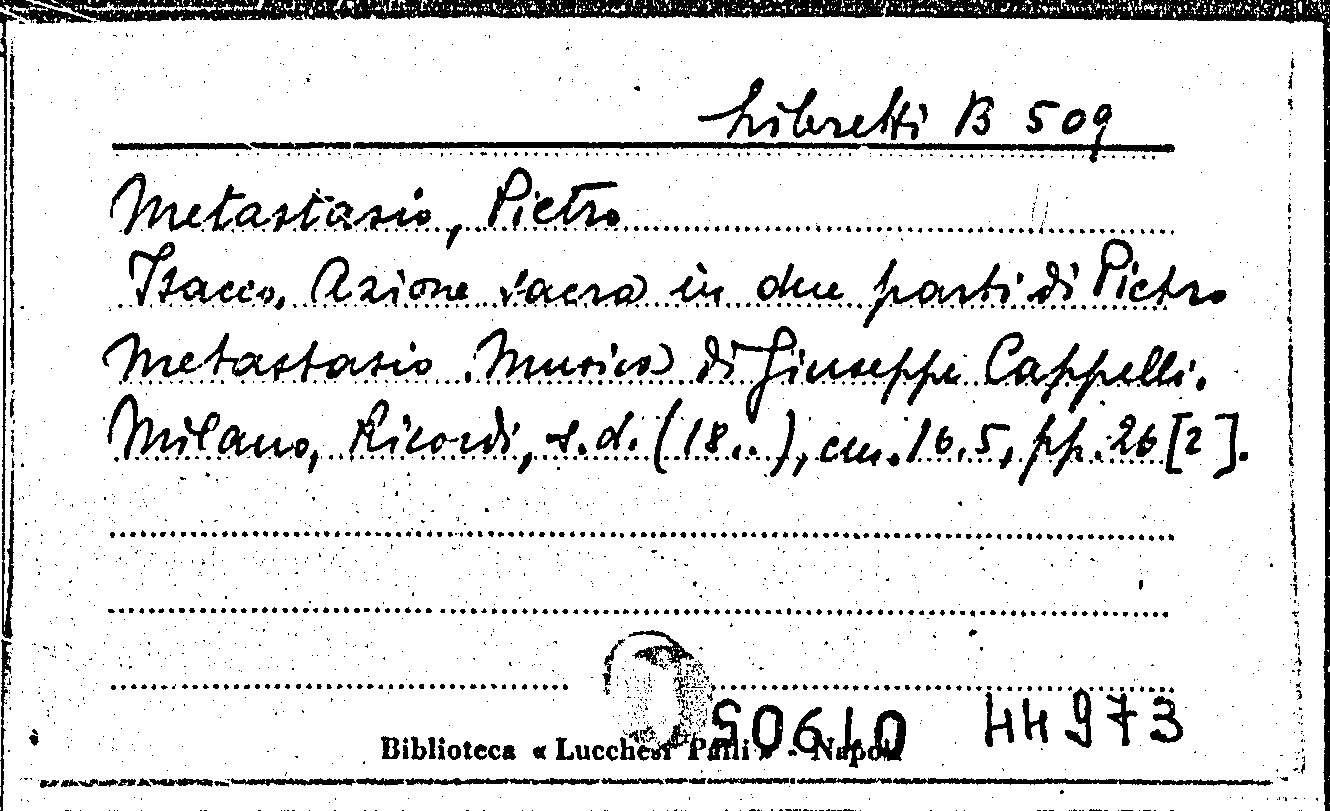 Libretti B 509
Metastasio, Pietro
Isacco. Azione sacra in due parti di Pietro
Metastasio. Musica di Giuseppe Cappelli.
Milano, Ricordi, s.d. (18..), cm. 16.5, pp. 26 [2].
44973
Biblioteca « Lucchesi Palli » - Napoli